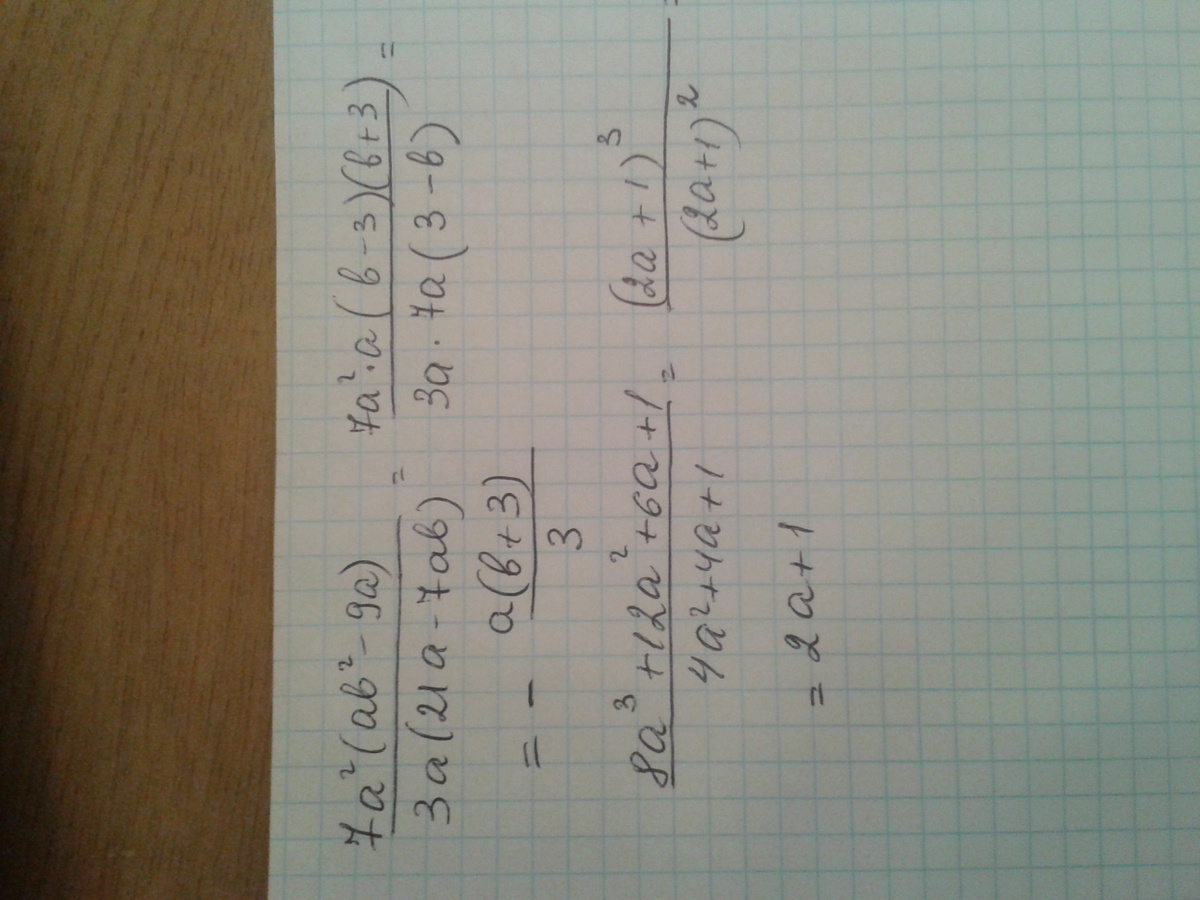 7a²(ab² - 9a) / 3a(21a - 7ab) = 7a²·a(b-3)(b+3) / 3a·7a(3-b) =
= - a(b+3) / 3
8a³+12a²+6a+1 / 4a²+4a+1 = (2a+1)³ / (2a+1)² =
= 2a+1